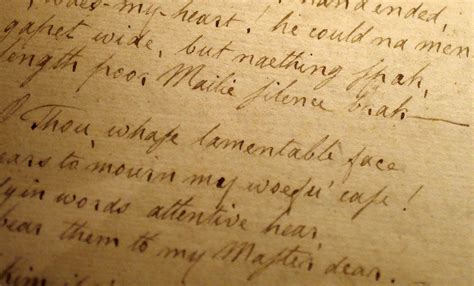 , waes-my-heart! he could na men
gapet wide, but naething spak,
length poor Mailie silence brak—
O Thou, whase lamentable face
ears to mourn my woefu' case!
dyin words attentive hear,
bear them to my Master dear.—
him, if